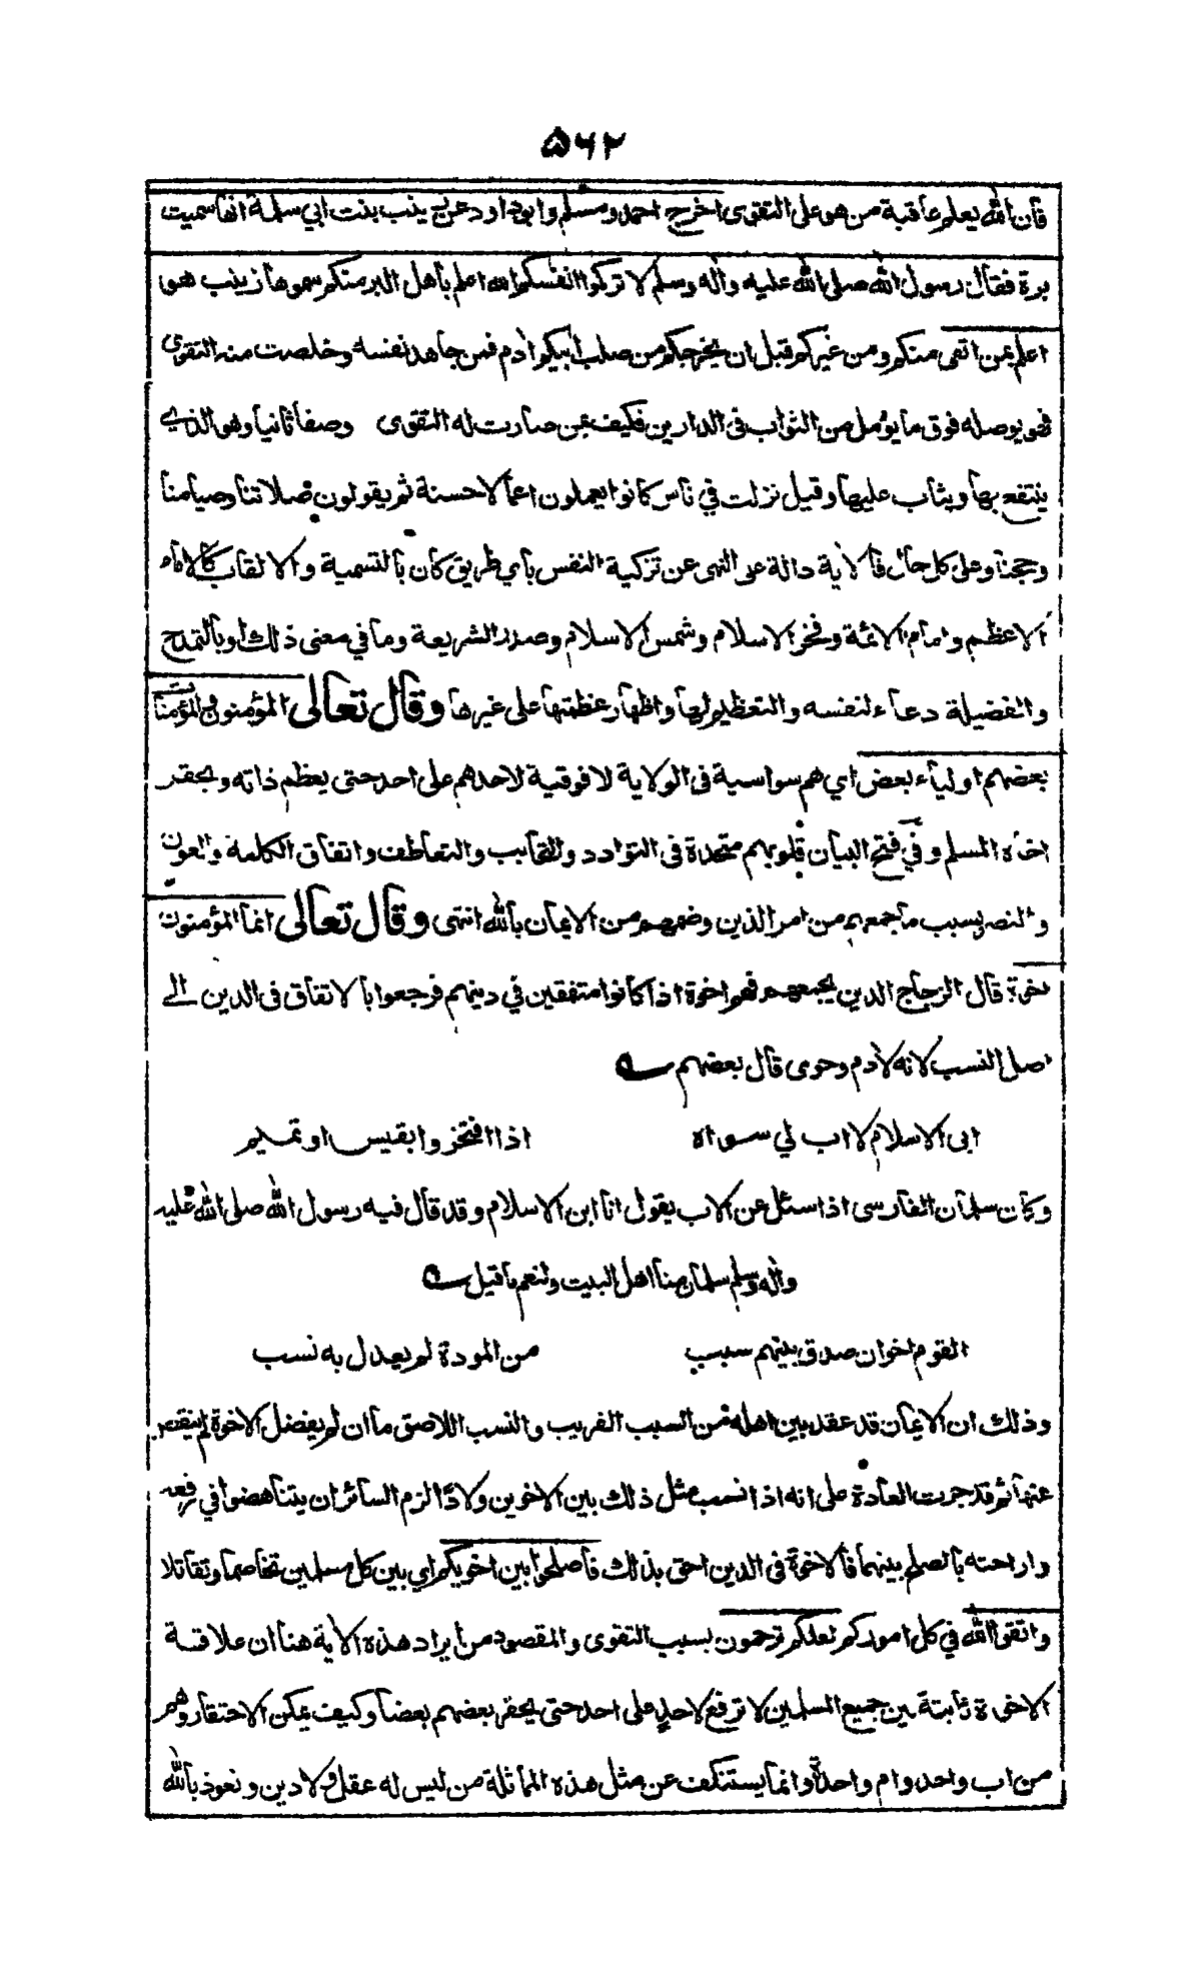 ۵۶۲
فان الله يعلم عاقبة من هو على التقوى اخرج احمد ومسلم وابو داود عن زينب بنت ابي سلمة انها سميت
برة فقال رسول الله صلى الله عليه واله وسلم لا تزكوا انفسكم الله اعلم باهل البر منكم سموها زينب هو
اعلم بمن اتقى منكم ومن غيركم قبل ان يخرجكم من صلب ابيكم ادم فمن جاهد نفسه وخلصت منه التقوى
فهو يوصله فوق ما يؤمل من الثواب في الدارين فكيف بمن صارت له التقوى وصفا ثانيا وهو الذي
ينتفع بها ويثاب عليها وقيل نزلت في ناس كانوا يعملون اعمالا حسنة ثم يقولون صلاتنا وصيامنا
وحجنا وعلى كل حال فالاية دالة على النهى عن تزكية النفس باي طريق كان بالتسمية والالقاب كالامام
الاعظم وامام الائمة وفخر الاسلام وشمس الاسلام وصدر الشريعة وما في معنى ذلك او بالتمدح
والفضيلة دعاء لنفسه والتعظيم لها واظهار عظمتها على غيرها وقال تعالى المؤمنون والمؤمنات
بعضهم اولياء بعض اي هم سواسية فى الولاية لا فوقية لاحدهم على احد حتى يعظم ذاته ويحقر
اخاه المسلم وفي فتح البيان قلوبهم متحدة فى التوادد والتحابب والتعاطف واتفاق الكلمة والعون
والنصر بسبب ما جمعهم من امر الدين وضمهم من الايمان بالله انتهى وقال تعالى انما المؤمنون
اخوة قال الزجاج الدين يجمعهم فهم اخوة اذا كانوا متفقين في دينهم فرجعوا بالاتفاق فى الدين الى
اصل النسب لانه لادم وحوى قال بعضهم
ابى الاسلام لا اب لي سواه اذا افتخروا بقيس او تميم
وكان سلمان الفارسى اذا سئل عن الاب يقول انا ابن الاسلام وقد قال فيه رسول الله صلى الله عليه
واله وسلم سلمان منا اهل البيت ولنعم ما قيل
القوم اخوان صدق بينهم سبب من المودة لم يعدل به نسب
وذلك ان الايمان قد عقد بين اهله من السبب القريب والنسب اللاصق ما ان لم يفضل الاخوة لم ينقص
عنها ثم قد جرت العادة على انه اذا نسب مثل ذلك بين الاخوين ولادًا لزم السائر ان يتناهضوا في رفعه
وازاحته بالصلح بينهما فالاخوة فى الدين احق بذلك فاصلحوا بين اخويكم اي بين كل مسلمين تخاصما وتقاتلا
واتقوا الله في كل اموركم لعلكم ترحمون بسبب التقوى والمقصود من ايراد هذه الاية هنا ان علاقة
الاخوة ثابتة بين جميع المسلمين لا ترفع لاحد على احد حتى يحقر بعضهم بعضا وكيف يمكن الاحتقار وهم
من اب واحد وام واحدة وانما يستنكف عن مثل هذه المماثلة من ليس له عقل ولا دين ونعوذ بالله